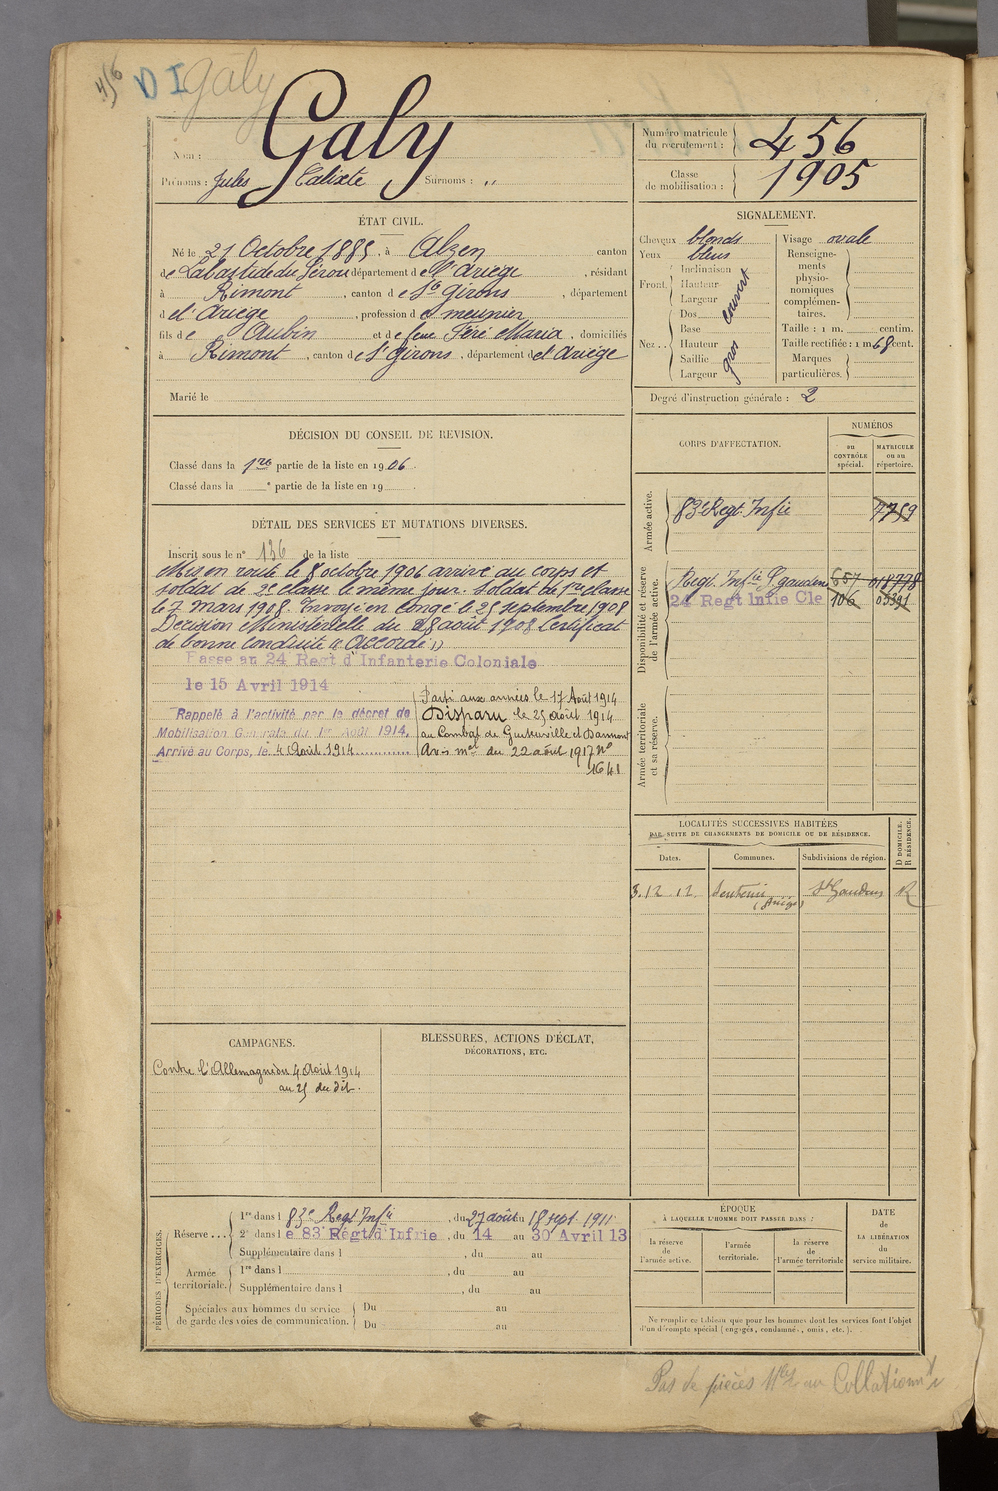 456 DI Galy
Nom : Galy
Prénoms : Jules Calixte Surnoms : "
Numéro matricule du recrutement : 456
Classe de mobilisation : 1905
ÉTAT CIVIL.
Né le 21 Octobre 1885, à Alzen canton
de Labastide du Sérou département de l'Ariège, résidant
à Rimont, canton de St Girons, département
d el'Ariège, profession de meunier
fils de Aubin et de feue Féré Maria, domiciliés
à Rimont, canton de St Girons, département de l'Ariège
Marié le
SIGNALEMENT.
Cheveux blonds
Yeux bleus
Front : Inclinaison
Hauteur
Largeur
couvert
Nez : Dos
Base
Hauteur
Saillie
Largeur
gros
Visage ovale
Renseigne-
ments
physio-
nomiques
complémen-
taires.
Taille : 1 m. centim.
Taille rectifiée : 1 m 68 cent.
Marques
particulières.
Degré d'instruction générale : 2
DÉCISION DU CONSEIL DE REVISION.
Classé dans la 1re partie de la liste en 1906.
Classé dans la e partie de la liste en 19
DÉTAIL DES SERVICES ET MUTATIONS DIVERSES.
Inscrit sous le n° 136 de la liste
Mis en route le 8 octobre 1906 arrivé au corps et
soldat de 2e classe le même jour. Soldat de 1re classe
le 7 mars 1908. Envoyé en congé le 25 septembre 1908
Décision Ministérielle du 28 août 1908 Certificat
de bonne conduite "Accordé"
Passé au 24 Regt d'Infanterie Coloniale
le 15 Avril 1914
Rappelé à l'activité par le décret de
Mobilisation Générale du 1er Août 1914.
Arrivé au Corps, le 4 Août 1914
Parti aux armées le 17 Août 1914
Disparu le 25 août 1914
au Combat de
Avis mel du 22 août 1917 N°
1641
CORPS D'AFFECTATION.
NUMÉROS
au CONTRÔLE spécial.
MATRICULE ou au répertoire.
Armée active.
83e Regt Infie 7759
Disponibilité et réserve de l'armée active.
Regt Infie St gaudens 657 018778
24 Regt Infie Cle 106 03391
Armée territoriale et sa réserve.
LOCALITÉS SUCCESSIVES HABITÉES
PAR SUITE DE CHANGEMENTS DE DOMICILE OU DE RÉSIDENCE.
Dates. Communes. Subdivisions de région. D DOMICILE. R RÉSIDENCE.
3.12.12 Sentenac (Ariège) St Gaudens R
CAMPAGNES.
Contre l'Allemagne du 4 Août 1914
au 25 du dit.
BLESSURES, ACTIONS D'ÉCLAT,
DÉCORATIONS, ETC.
PÉRIODES D'EXERCICES.
Réserve ... 1re dans l 83e Regt Infie, du 27 août au 18 sept 1911
2e dans le 83 Régt d'Infrie, du 14 au 30 Avril 13
Supplémentaire dans l , du au
Armée territoriale. 1re dans l , du au
Supplémentaire dans l , du au
Spéciales aux hommes du service
de garde des voies de communication. Du au
Du au
ÉPOQUE
À LAQUELLE L'HOMME DOIT PASSER DANS :
la réserve de l'armée active.
l'armée territoriale.
la réserve de l'armée territoriale
DATE
de
LA LIBÉRATION
du
service militaire.
Ne remplir ce tableau que pour les hommes dont les services font l'objet
d'un décompte spécial (engagés, condamnés, omis, etc.).
Pas de pièces Mles au Collationnt